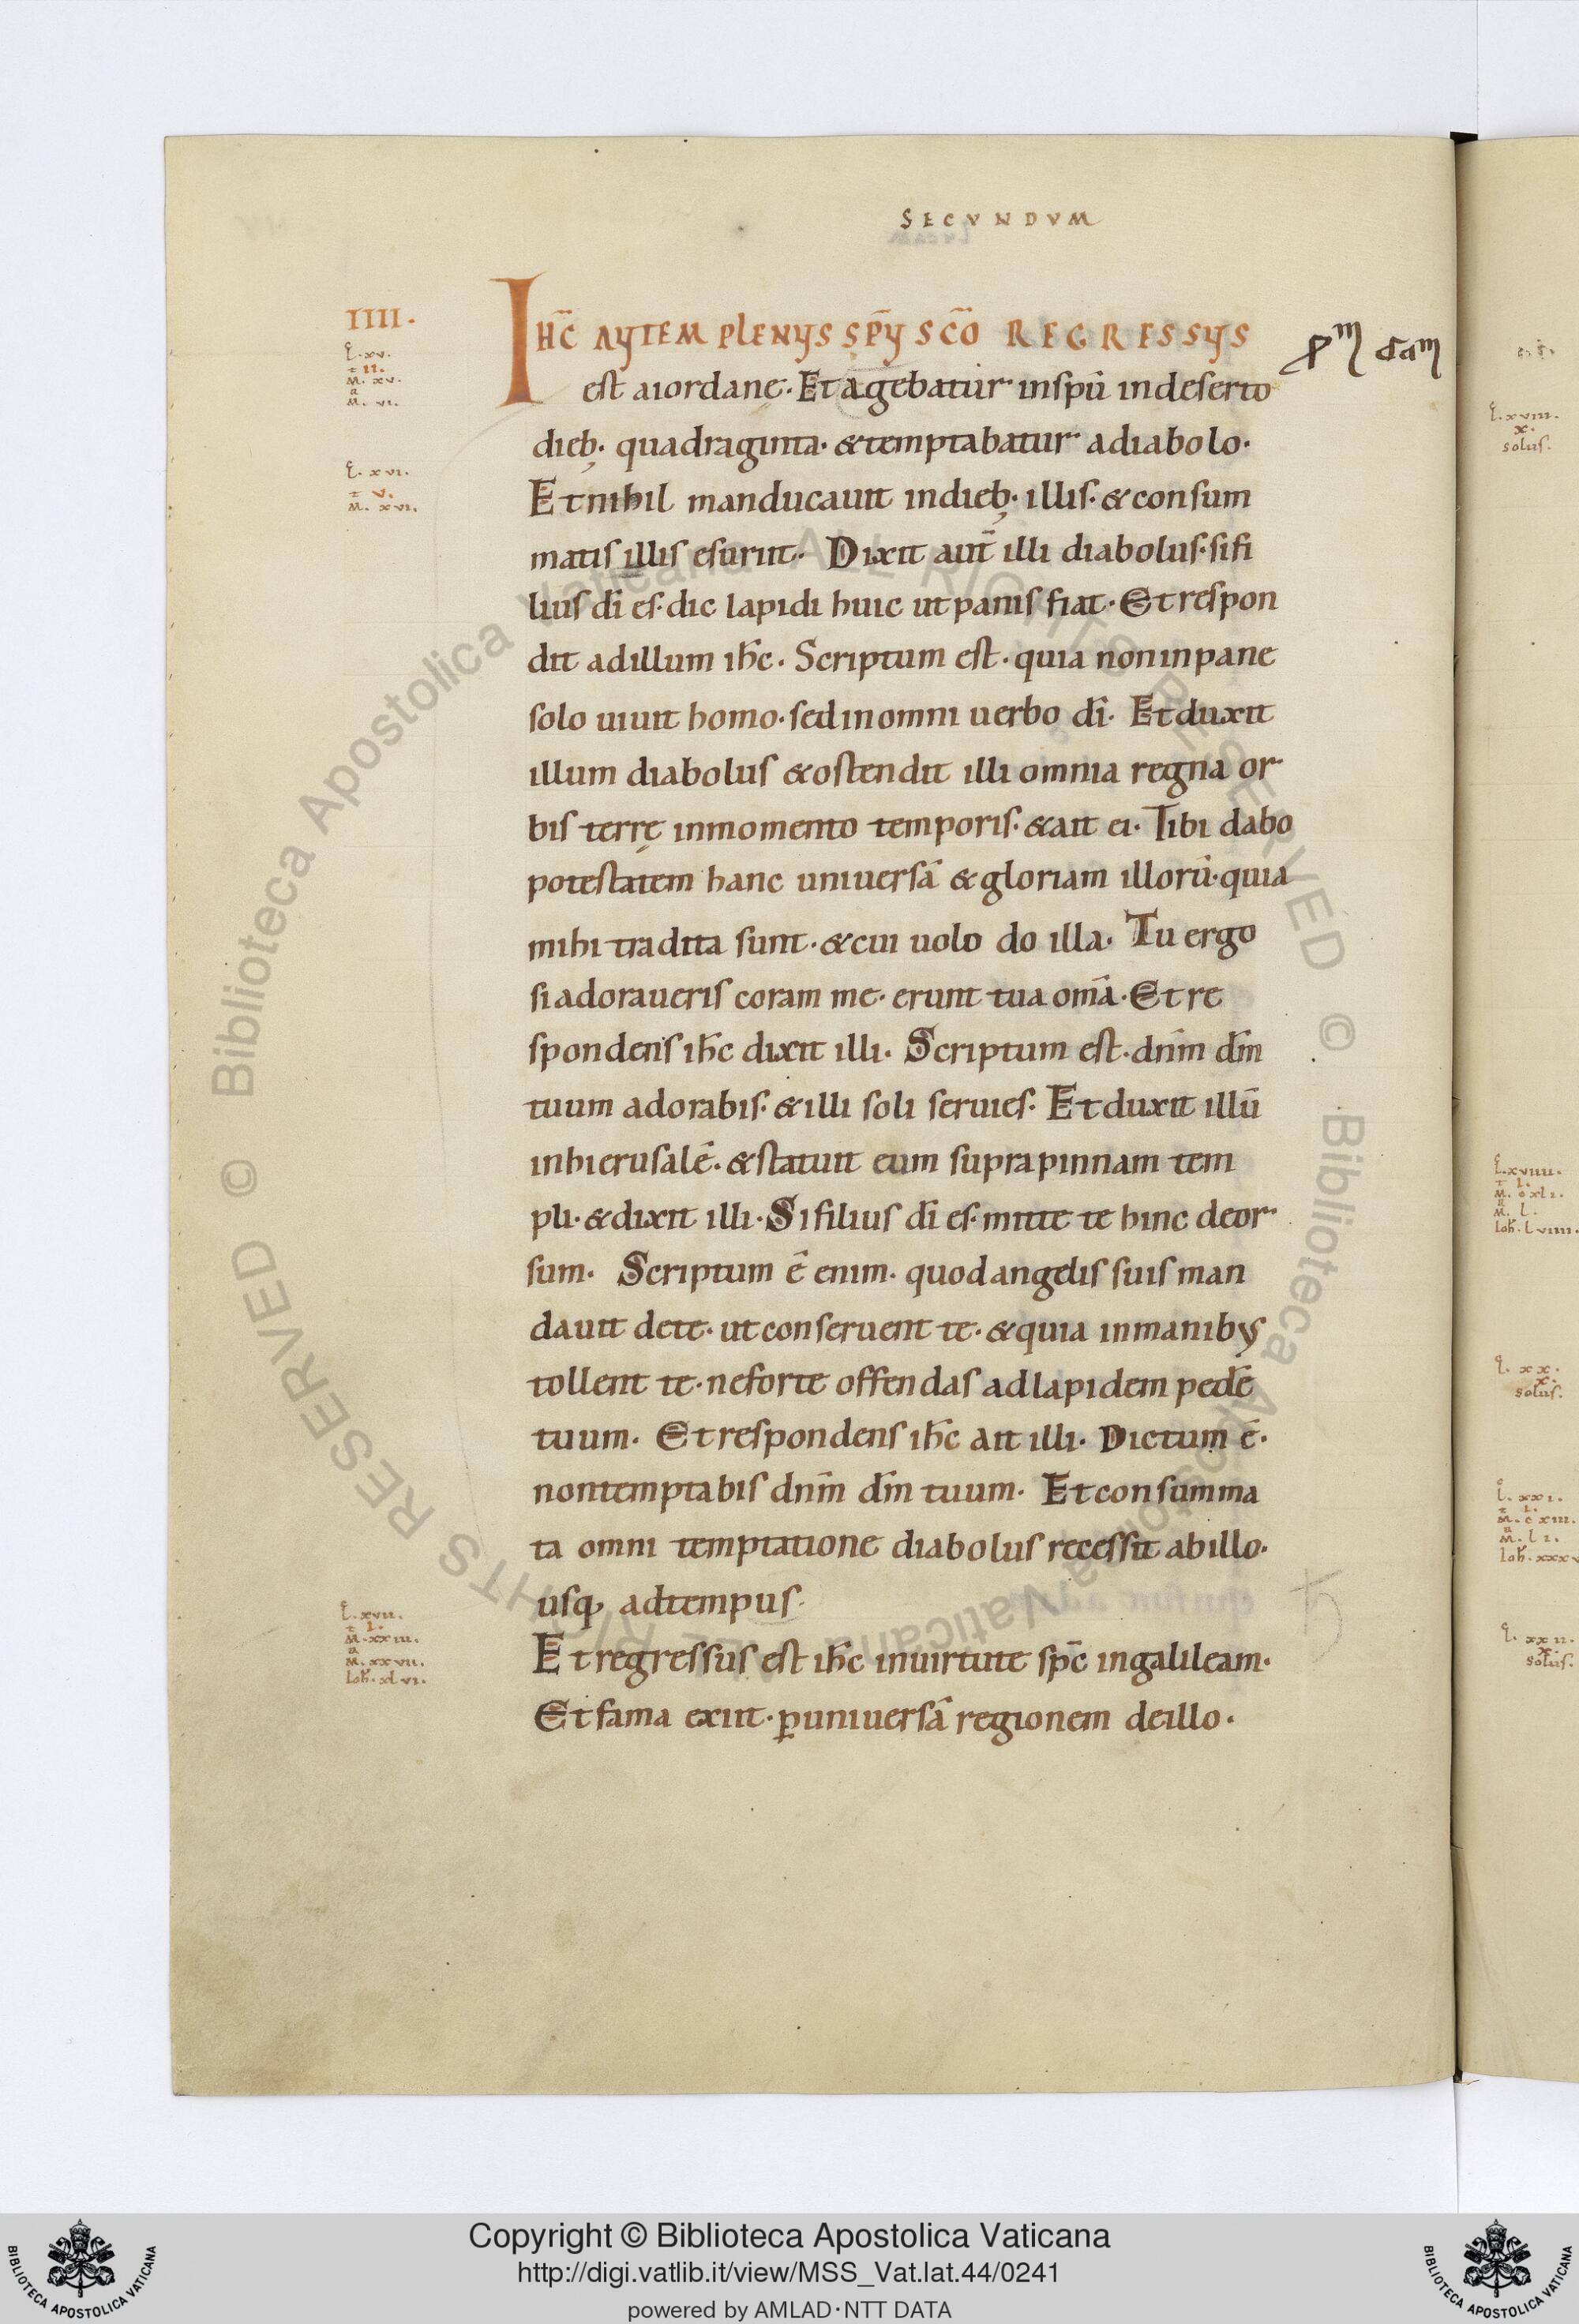 SECVNDVM
IIII.
IHC̄ AVTEM PLENVS SP̄V SC̄O REGRESSVS
p̄m dam
L. xv.
+ II.
M. xv.
M. vi.
est aiordane. Et agebatur inspū indeserto
dieb; quadraginta. & temptabatur adiabolo.
L. xvi.
+ v.
M. xvi.
Et nihil manducauit indieb; illis. & consum
matis illis esuriit. Dixit aut̄ illi diabolus. si fi
lius dī es. dic lapidi huic ut panis fiat. Et respon
dit adillum ih̄c. Scriptum est. quia noninpane
solo uiuit homo. sed inomni uerbo dī. Et duxit
illum diabolus & ostendit illi omnia regna or
bis terrę inmomento temporis. & ait ei. Tibi dabo
potestatem hanc uniuersā & gloriam illorū. quia
mihi tradita sunt. & cui uolo do illa. Tu ergo
si adoraueris coram me. erunt tua om̄a. Et re
spondens ih̄c dixit illi. Scriptum est. dn̄m dm̄
tuum adorabis. & illi soli seruies. Et duxit illū
inhierusalē. & statuit eum supra pinnam tem
pli. & dixit illi. Si filius dī es. mitte te hinc deor
sum. Scriptum ē enim. quod angelis suis man
dauit dete. ut conseruent te. & quia inmanibus
tollent te. neforte offendas adlapidem pedē
tuum. Et respondens ih̄c ait illi. Dictum ē.
nontemptabis dn̄m dm̄ tuum. Et consumma
ta omni temptatione diabolus recessit abillo.
usq; adtempus.
L. xvii.
+ I.
M. xxiii.
M. xxvii.
Ioh. xlvi.
Et regressus est ih̄c inuirtute sp̄c ingalileam.
Et fama exiit. ꝑuniuersā regionem deillo.
L. xviii.
x.
solus.
L. xviiii.
+ I.
M. cxli.
M. l.
Ioh. lviiii.
L. xx.
x.
solus.
L. xxi.
+ I.
M. cxiii.
M. li.
L. xxii.
x.
solus.
© Biblioteca Apostolica Vaticana ALL RIGHTS RESERVED © Biblioteca Apostolica Vaticana ALL RIGHTS RESERVED
Copyright © Biblioteca Apostolica Vaticana
http://digi.vatlib.it/view/MSS_Vat.lat.44/0241
powered by AMLAD·NTT DATA
BIBLIOTECA APOSTOLICA VATICANA
BIBLIOTECA APOSTOLICA VATICANA